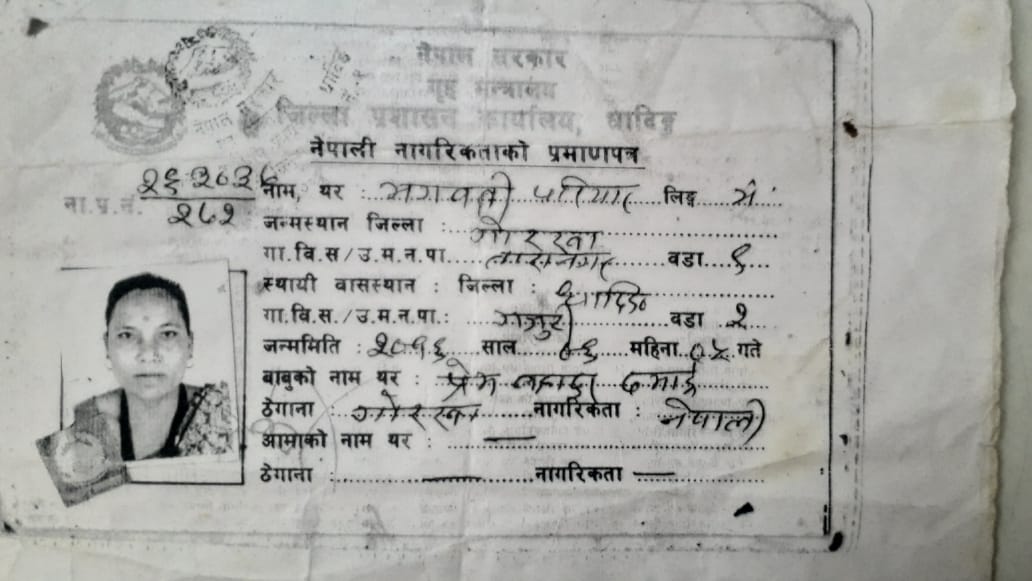 नेपाल सरकार
गृह मन्त्रालय
जिल्ला प्रशासन कार्यालय, धादिङ्ग
नेपाली नागरिकताको प्रमाणपत्र
ना.प्र.नं.
नाम, थर : भगवती परियार लिङ्ग
जन्मस्थान जिल्ला : गोरखा
गा.वि.स/उ.म.न.पा. वडा ६
स्थायी वासस्थान : जिल्ला : धादिङ
गा.वि.स./उ.म.न.पा.: गजुरी वडा २
जन्ममिति : साल ०६ महिना ०५ गते
बाबुको नाम थर : प्रेम बहादुर दमाई
ठेगाना : गोरखा नागरिकता : नेपाली
आमाको नाम थर : —
ठेगाना : — नागरिकता —